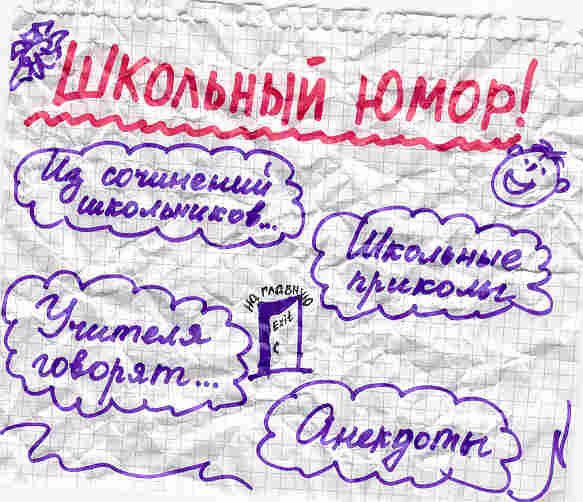 Школьный юмор!
Из сочинений
школьников...
Школьные
приколы
Учителя
говорят...
на главную
Exit
Анекдоты